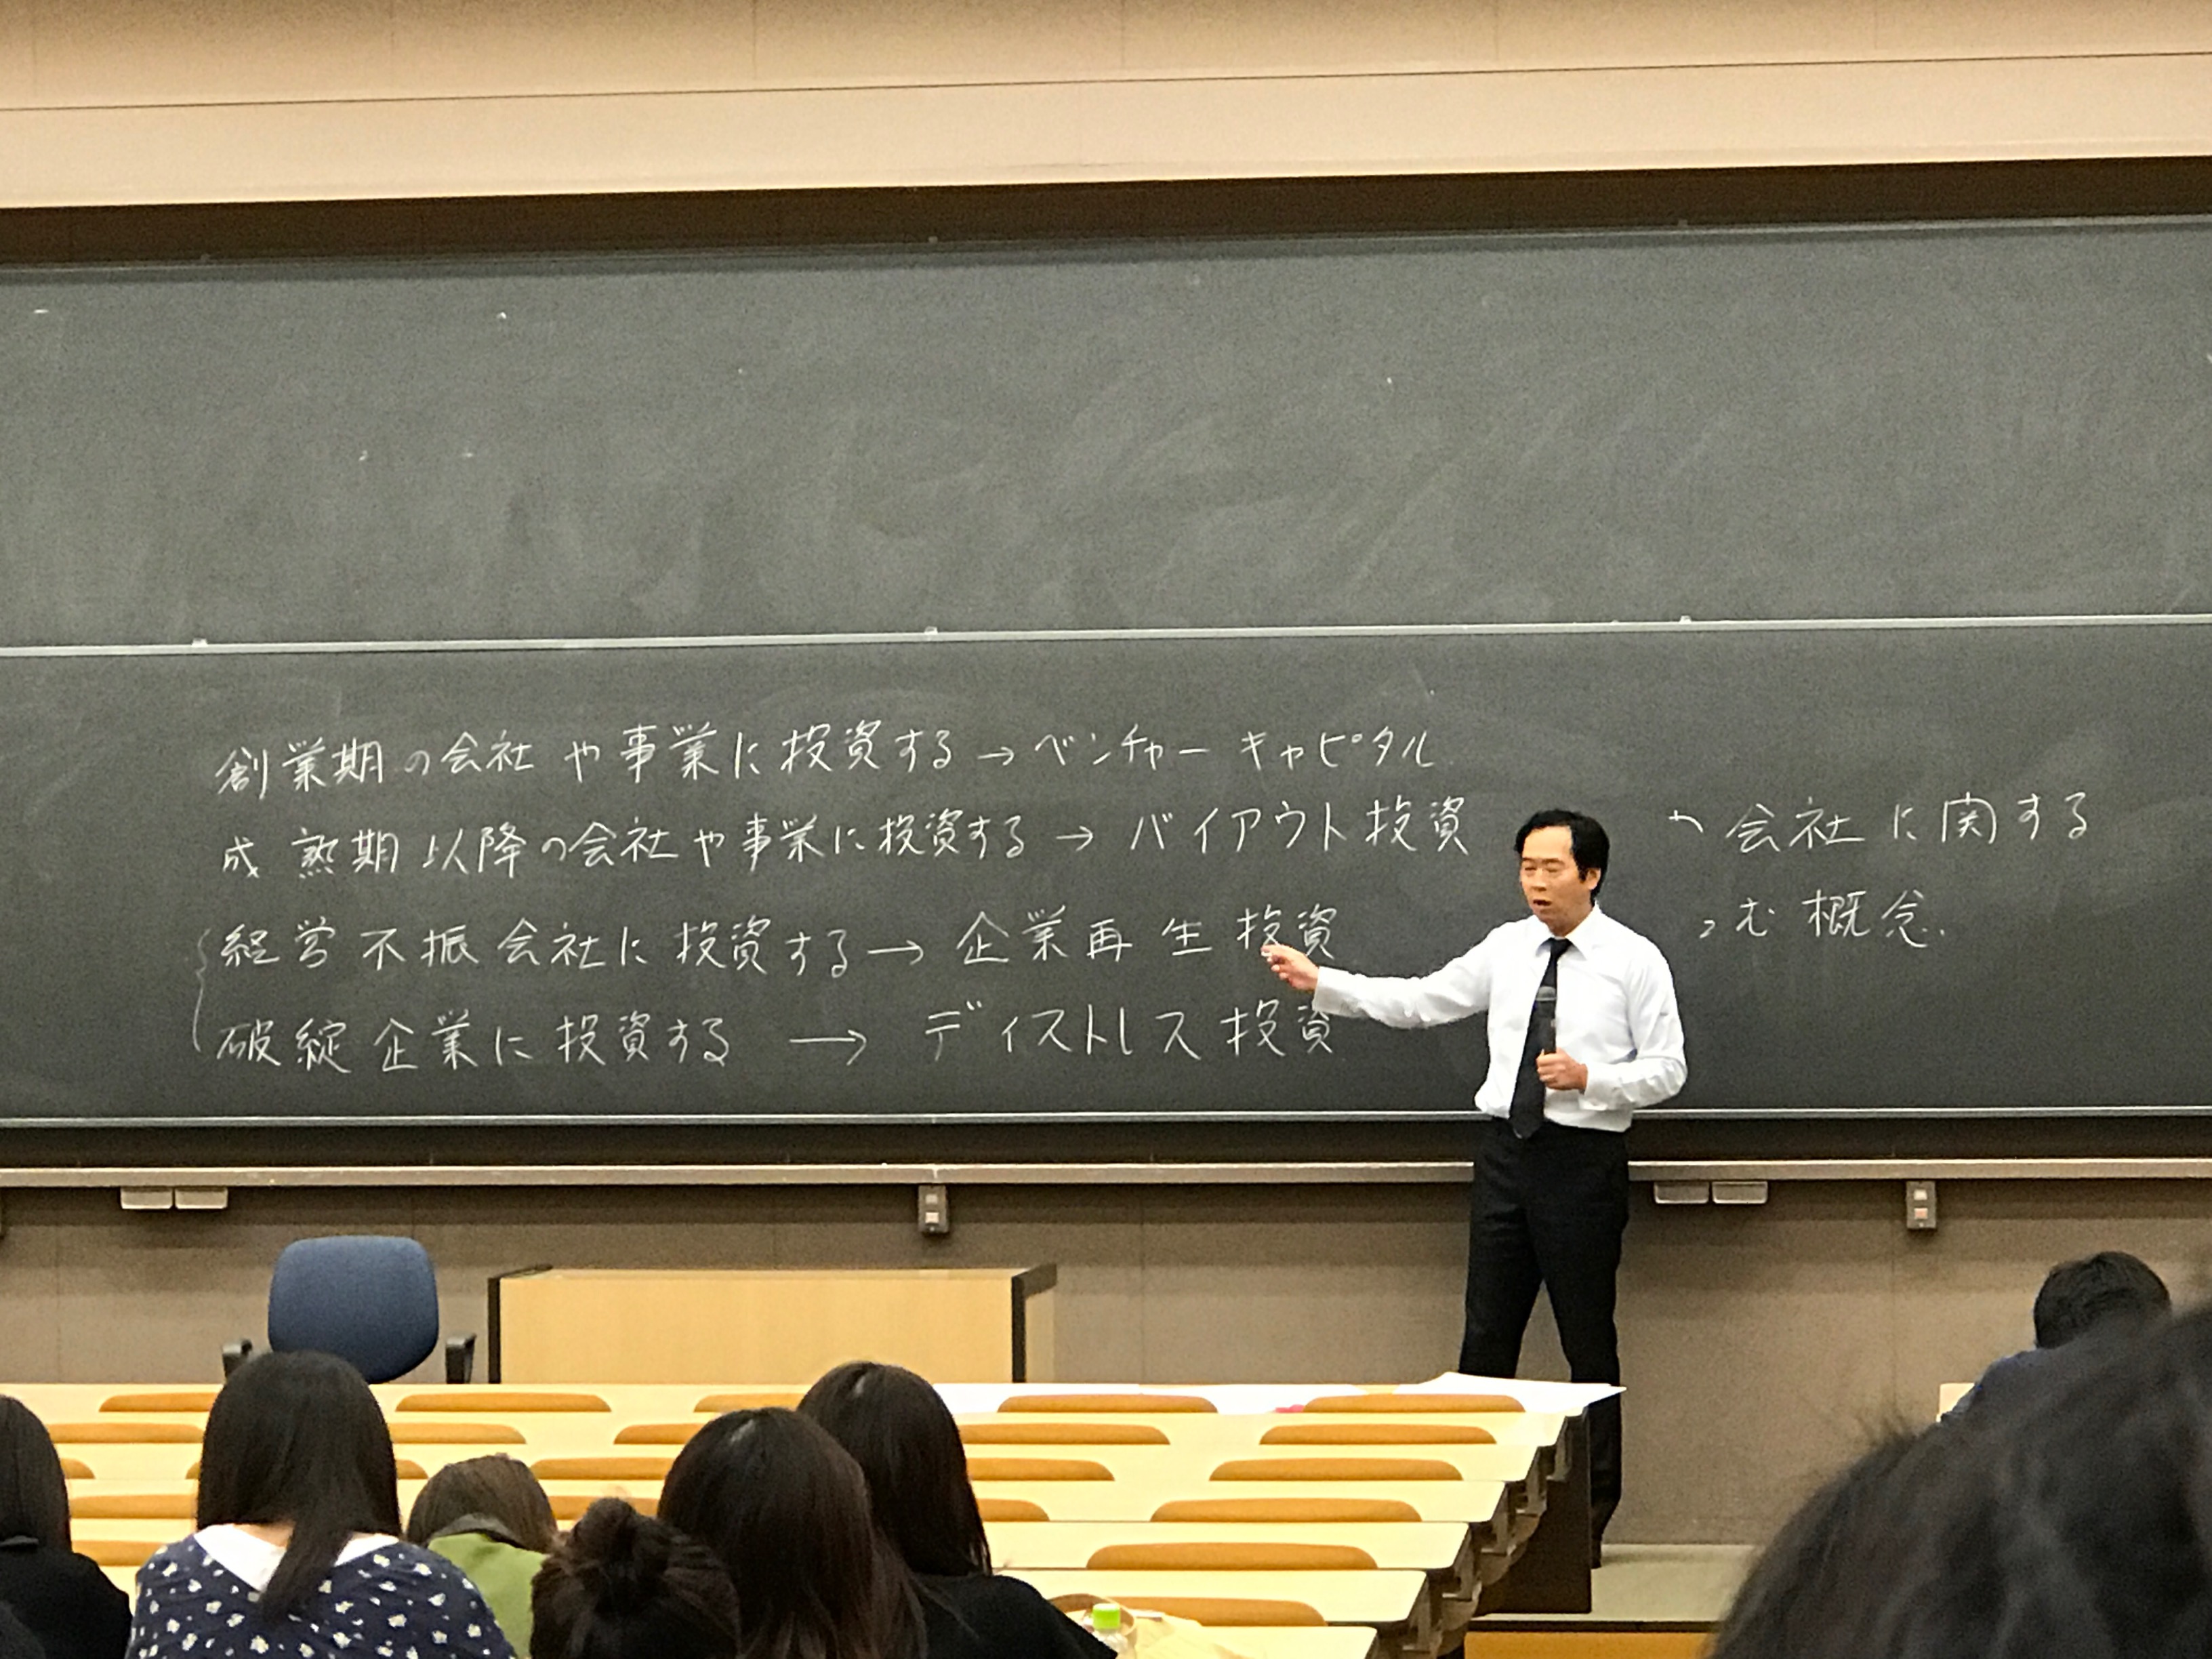 創業期の会社や事業に投資する→ベンチャーキャピタル
成熟期以降の会社や事業に投資する→バイアウト投資
経営不振会社に投資する→企業再生投資
破綻企業に投資する→ディストレス投資
会社に関する
む概念.